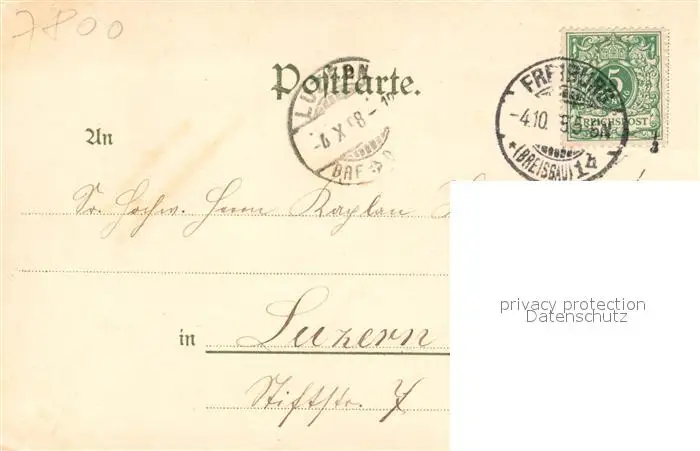 7800
Postkarte.
LUZERN
-4.X.98-
BRF.
FREIBURG
-4.10.
(BREISGAU)
5
REICHSPOST
An
Sr. Hochw. Herrn Kaplan
in Luzern
Stiftstr. 7
privacy protection
Datenschutz